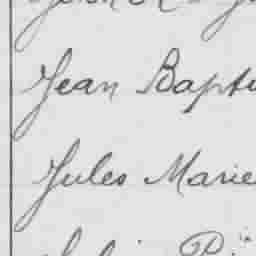 Jean Bapti
Jules Marie